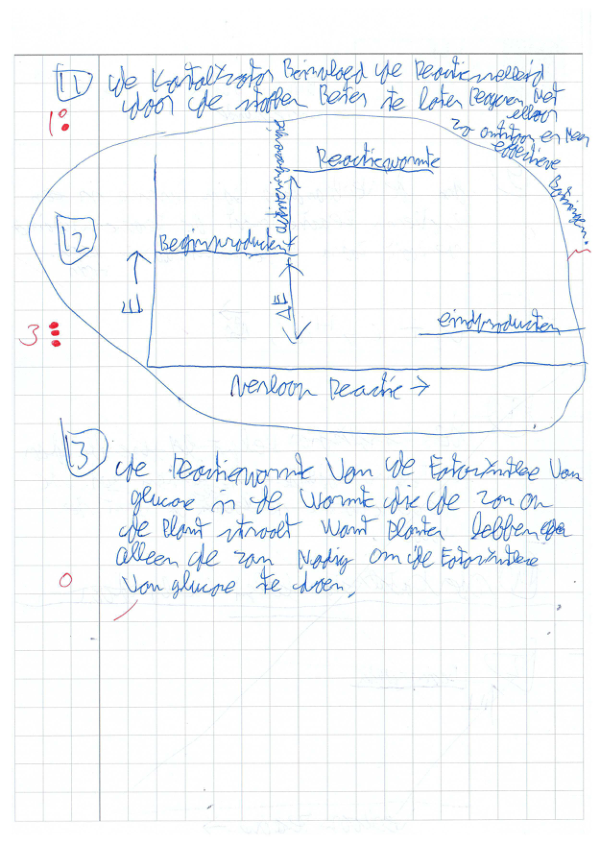 11 de Katalysator Beinvloed de Reactiesnelheid
door de stoffen Beter te laten Reageren met
elkaar
zo ontstaan er Meer
effectieve
Botsingen.
1
activeringsenergie
Reactiewarmte
12
Beginproducten
E →
ΔE
eindproducten
3
Verloop Reactie →
13
de Reactiewarmte Van de Fotosynthese Van
glucose is de Warmte die de zon on
de Plant straalt Want Planten hebben
alleen de zon Nodig om de Fotosynthese
0
Van glucose te doen.